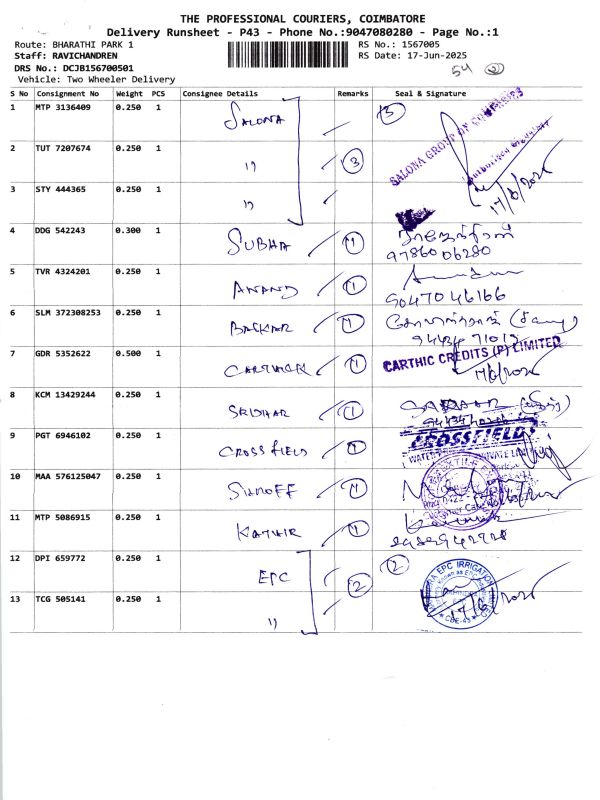 THE PROFESSIONAL COURIERS, COIMBATORE
Delivery Runsheet - P43 - Phone No.:9047080280 - Page No.:1
Route: BHARATHI PARK 1 RS No.: 1567005
Staff: RAVICHANDREN RS Date: 17-Jun-2025
DRS No.: DCJB156700501 54
Vehicle: Two Wheeler Delivery
S No Consignment No Weight PCS Consignee Details Remarks Seal & Signature
1 MTP 3136409 0.250 1 SALONA 3 SALONA GROUP OF COMPANIES
2 TUT 7207674 0.250 1 11 3 Authorised Signatory
3 STY 444365 0.250 1 11 17/6/2025
4 DDG 542243 0.300 1 SUBHA 1 9786006280
5 TVR 4324201 0.250 1 ANAND 1 9047046166
6 SLM 372308253 0.250 1 BASKAR 1
7 GDR 5352622 0.500 1 CARTHICK 1 CARTHIC CREDITS (P) LIMITED
17/6/2025
8 KCM 13429244 0.250 1 SRIDHAR 1
9 PGT 6946102 0.250 1 CROSSFIELD 1 CROSSFIELD
10 MAA 576125047 0.250 1 SUNOFF 1
11 MTP 5086915 0.250 1 KATHIR 1
12 DPI 659772 0.250 1 EPC 2 2 EPC IRRIGATION
13 TCG 505141 0.250 1 11 17/6/2025
CBE-43